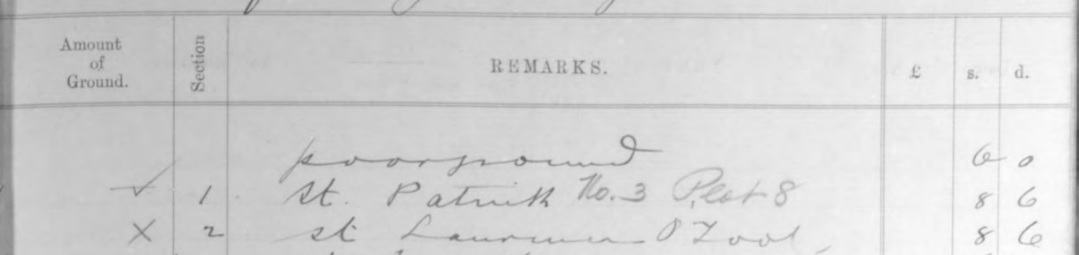 Amount of Ground. Section REMARKS. £ s. d.
poorground 6 0
✓ 1 St. Patrick No. 3 Plot 8 8 6
X 2 St Laurence O Tool 8 6